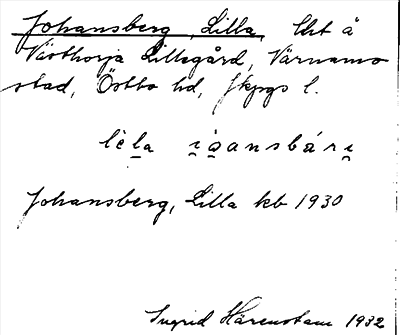 Johansberg, Lilla, lht å
Västhorja Lillegård, Värnamo
stad, Östbo hd, Jkpgs l.
Johansberg, Lilla kb 1930
Ingrid Härenstam 1932